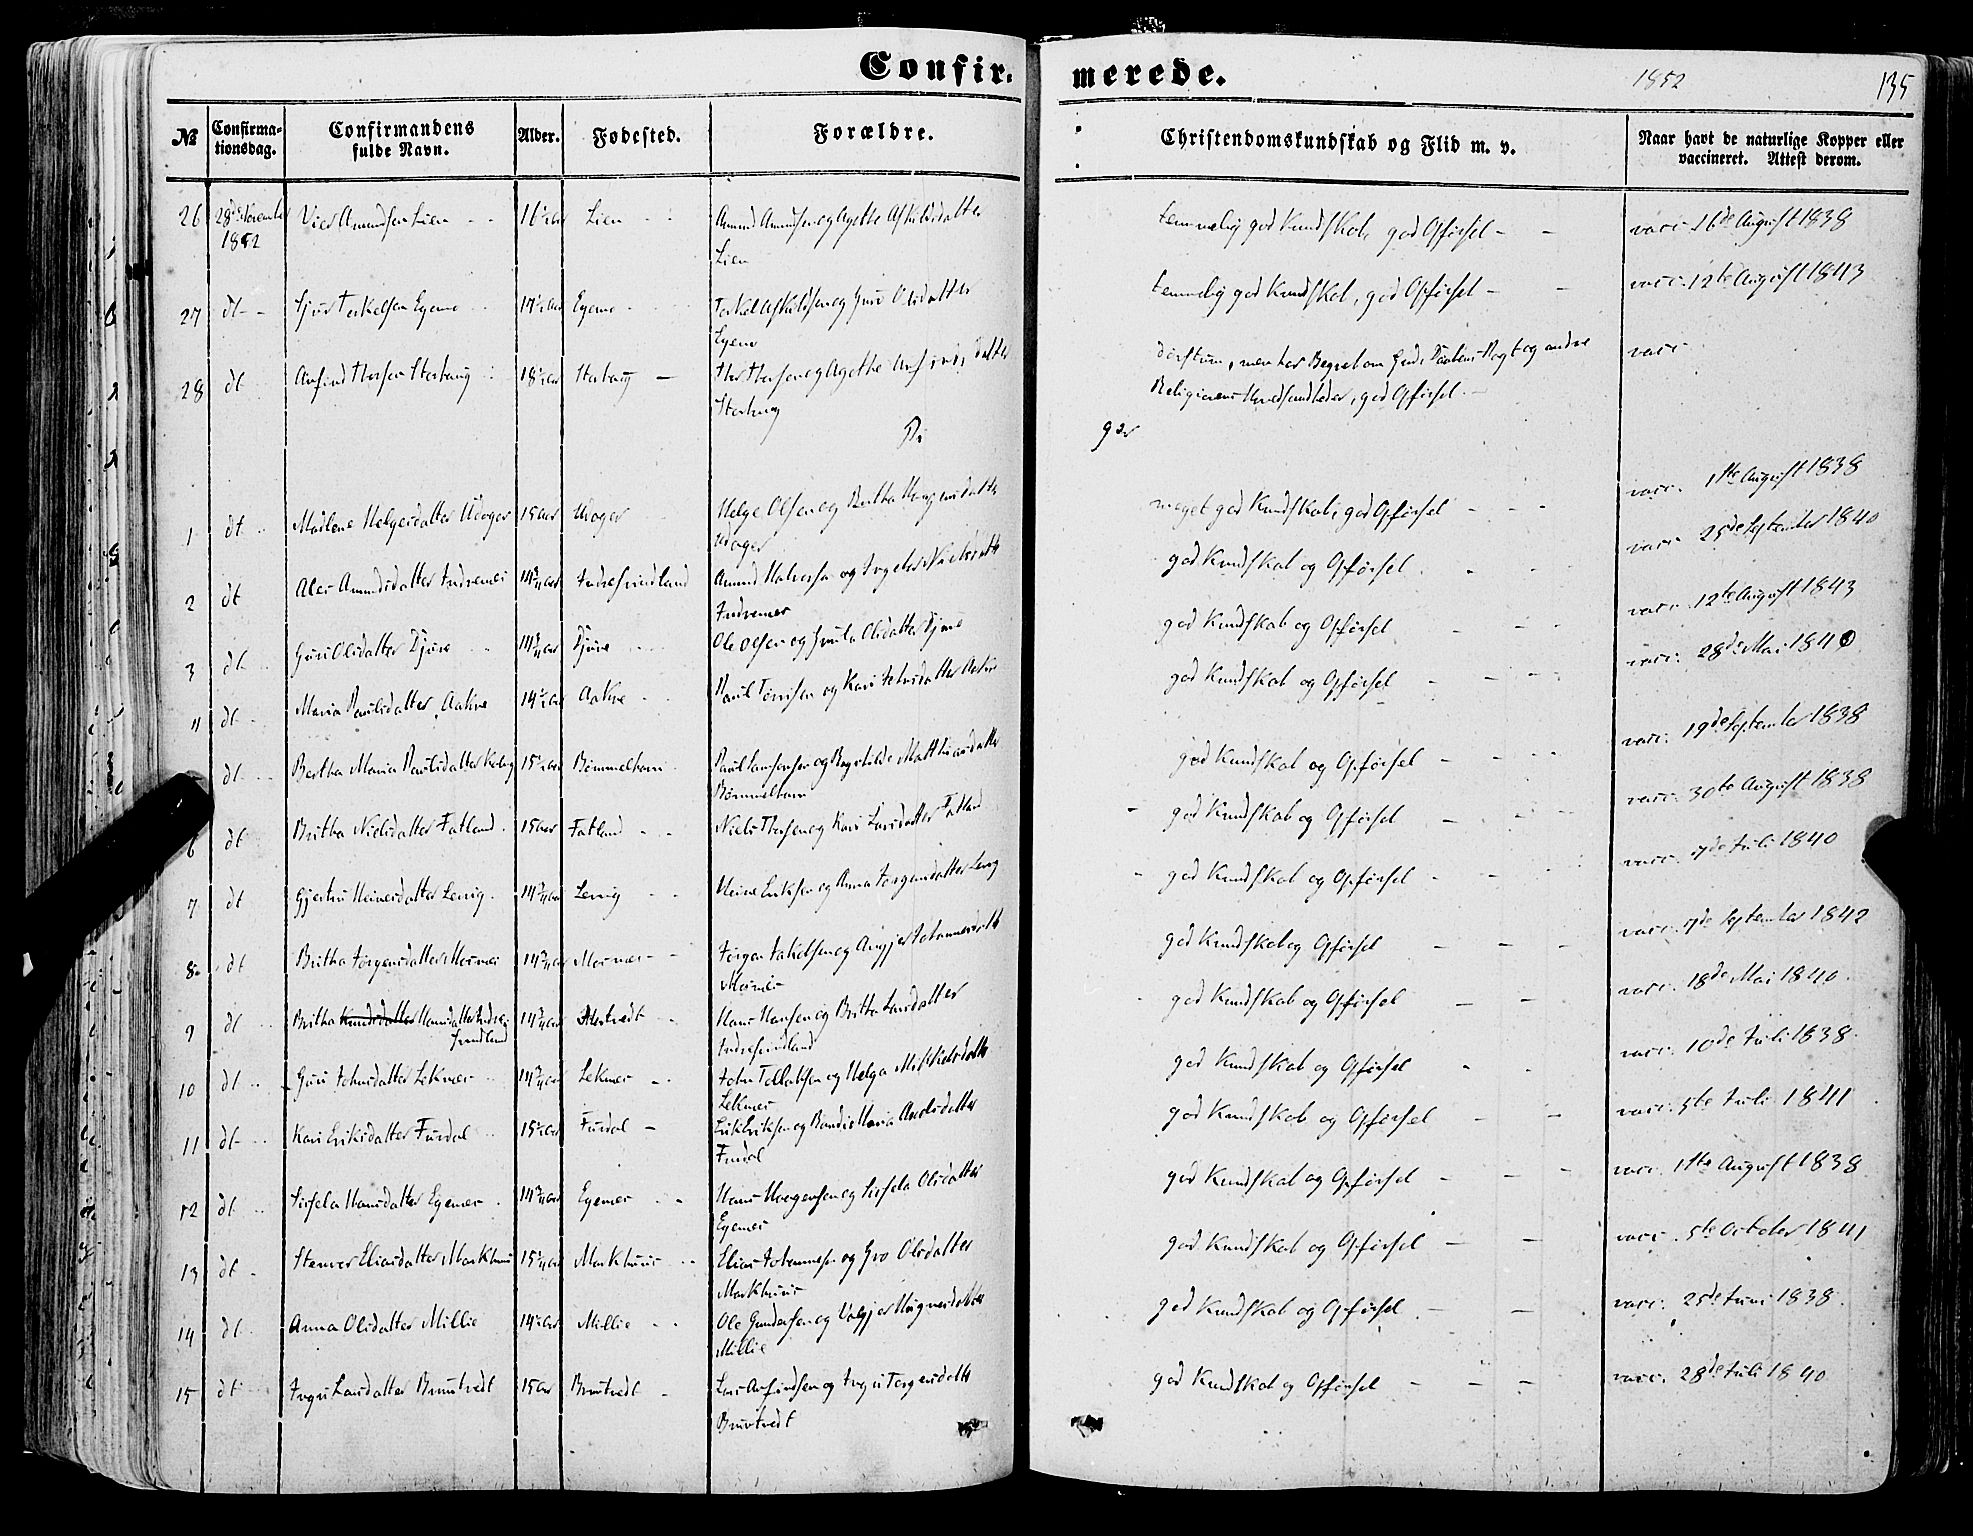 Confir- merede.
1852 135
№ Confirma-tionsdag. Confirmandens fulde Navn. Alder. Fødested. Forældre. Christendomskundskab og Flid m. v. Naar havt de naturlige Kopper eller vaccineret. Attest derom.
26 28de November 1852 Amundsen Lien 16½ Aar Lien Amund Amundsen og Agethe Askildsdatter Lien temmelig god Kundskab, god Opførsel vacc. 16de August 1838
27 dt Sjur Torkelsen Egenæs Egenæs Torkel Askildsen og Guro Olsdatter Egenæs temmelig god Kundskab, god Opførsel vacc. 12te August 1843
28 dt Arfind Thorsen Storhaug 18½ Aar Storhaug Thor Thorsen og Agethe Arfindsdatter Storhaug men har Begreb om Guds og andre Religionens Hovedsandheder, god Opførsel. vacc.
Pi ger
1 dt Madlene Helgesdatter Udager 15 Aar Udager Helge Olsen og Britha Udager meget god Kundskab, god Opførsel vacc. 1ste August 1838
2 dt Amundsdatter Indrenæs 14¾ Aar Indrefrindland Amund Halvorsen og Nielsdatter Indrenæs god Kundskab og Opførsel vacc. 25de September 1840
3 dt Guri Olsdatter Djuve Djuve Ole Olsen og Olsdatter Djuve god Kundskab og Opførsel vacc. 12te August 1843
4 dt Maria Paulsdatter Aakre 14½ Aar Aakre Paul Tørrisen og Kari Aakre god Kundskab og Opførsel vacc. 28de Mai 1840
dt Bertha Maria Paulsdatter 15½ Aar Bømmelhavn Paul og Matthiasdatter Bømmelhavn god Kundskab og Opførsel vacc. 19de September 1838
6 dt Britha Nielsdatter Fatland 15 Aar Fatland Niels Thorsen og Kari Larsdatter Fatland god Kundskab og Opførsel vacc. 30te August 1838
7 dt Gjertru Heinesdatter Lervig 14¾ Aar Lervig Heine Eriksen og Anna Jørgensdatter Lervig god Kundskab og Opførsel vacc. 7de Juli 1840
8 dt Britha Jørgensdatter Mosnæs 14¾ Aar Mosnæs Jørgen Jakobsen og Johannesdatter Mosnæs god Kundskab og Opførsel vacc. 7de September 1842
9 dt Britha Knudsdatter Hansdatter Indrefrindland 14¾ Aar Hans Hansen og Britta Larsdatter Indrefrindland god Kundskab og Opførsel vacc. 18de Mai 1840
10 dt Guri Johnsdatter Leknæs 14¾ Aar Leknæs John Tollaksen og Helga Leknæs god Kundskab og Opførsel vacc. 10de Juli 1838
11 dt Kari Eriksdatter Furdal 15½ Aar Furdal Erik Eriksen og Maria Axelsdatter Furdal god Kundskab og Opførsel vacc. 5te Juli 1841
12 dt Sissela Hansdatter Egenæs 14¾ Aar Egenæs Hans og Sissela Olsdatter Egenæs god Kundskab og Opførsel vacc. 1ste August 1838
13 dt Eliasdatter Markhuus Markhuus Elias Johannesen og Gro Olsdatter Markhuus god Kundskab og Opførsel vacc. 5te October 1841
14 dt Anna Olsdatter Millie 14½ Aar Millie Ole Gundersen og Valgjer Millie god Kundskab og Opførsel vacc. 25de Juni 1838
15 dt Larsdatter Bruntvedt 15 Aar Bruntvedt Lars Arfindsen og Torgersdatter Bruntvedt god Kundskab og Opførsel vacc. 28de Juli 1840